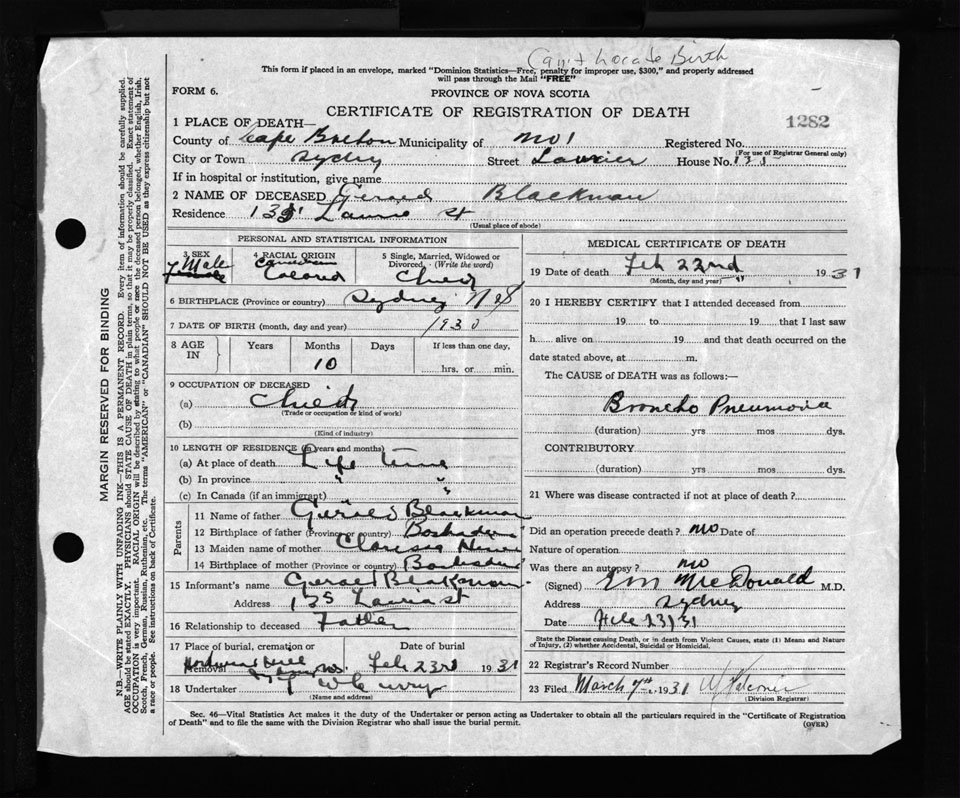 Can't Locate Birth
This form if placed in an envelope, marked "Dominion Statistics—Free, penalty for improper use, $300," and properly addressed
will pass through the Mail "FREE"
FORM 6.
PROVINCE OF NOVA SCOTIA
CERTIFICATE OF REGISTRATION OF DEATH
1282
1 PLACE OF DEATH—
County of Cape Breton Municipality of No 1 Registered No.
(For use of Registrar General only)
City or Town Sydney Street Laurier House No. 135
If in hospital or institution, give name
2 NAME OF DECEASED Gerard Blackman
Residence 135 St
(Usual place of abode)
PERSONAL AND STATISTICAL INFORMATION
3 SEX
Male
Female
4 RACIAL ORIGIN
Canadian
Colored
5 Single, Married, Widowed or
Divorced. (Write the word)
Child
6 BIRTHPLACE (Province or country) Sydney N S
7 DATE OF BIRTH (month, day and year) 1930
8 AGE IN
Years
Months
10
Days
If less than one day,
hrs. or min.
9 OCCUPATION OF DECEASED
(a) Child
(Trade or occupation or kind of work)
(b)
(Kind of industry)
10 LENGTH OF RESIDENCE (in years and months)
(a) At place of death Life time
(b) In province " "
(c) In Canada (if an immigrant) "
Parents
11 Name of father Blackman
12 Birthplace of father (Province or country)
13 Maiden name of mother
14 Birthplace of mother (Province or country)
15 Informant's name Blackman
Address 135 St
16 Relationship to deceased Father
17 Place of burial, cremation or
Removal Hardwood Hill
Sydney NS.
Date of burial
Feb 23rd 1931
18 Undertaker
(Name and address)
MEDICAL CERTIFICATE OF DEATH
19 Date of death Feb 22nd 1931
(Month, day and year)
20 I HEREBY CERTIFY that I attended deceased from
19 to 19 that I last saw
h alive on 19 and that death occurred on the
date stated above, at m.
The CAUSE of DEATH was as follows:—
Broncho Pneumonia
(duration) yrs mos dys.
CONTRIBUTORY
(duration) yrs mos dys.
21 Where was disease contracted if not at place of death?
Did an operation precede death? No Date of
Nature of operation
Was there an autopsy? no
(Signed) McDonald M.D.
Address Sydney
Date Feb 23/31
State the Disease causing Death, or in death from Violent Causes, state (1) Means and Nature
of Injury, (2) whether Accidental, Suicidal or Homicidal.
22 Registrar's Record Number
23 Filed March 7th 1931
(Division Registrar)
Sec. 46—Vital Statistics Act makes it the duty of the Undertaker or person acting as Undertaker to obtain all the particulars required in the "Certificate of Registration
of Death" and to file the same with the Division Registrar who shall issue the burial permit.
(OVER)
MARGIN RESERVED FOR BINDING
N.B.—WRITE PLAINLY WITH UNFADING INK—THIS IS A PERMANENT RECORD. Every item of information should be carefully supplied.
AGE should be stated EXACTLY. PHYSICIANS should STATE CAUSE OF DEATH in plain terms, so that it may be properly classified. Exact statement of
OCCUPATION is very important. RACIAL ORIGIN will be described by stating to what people or race the deceased person belonged, whether English, Irish,
Scotch, French, German, Russian, Ruthenian, etc. The terms "AMERICAN" or "CANADIAN" SHOULD NOT BE USED as they express citizenship but not
a race or people. See instructions on back of Certificate.